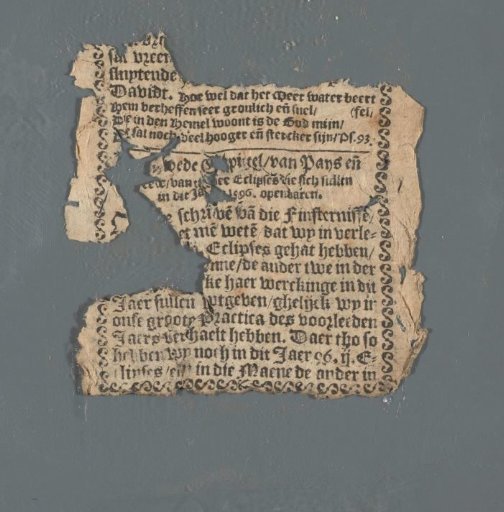 sal vreem
sluytende
Davidt. Hoe wel dat het Meer water beert
Hem verheffen seer grouwlich eñ snel/ (sel.
Die in den Hemel woont is de God mijn/
Die sal noch veel hooger eñ stercker sijn/Ps. 93.
wede Capittel/van Pays eñ
van Eclipsen die sich sullen
in dit Ja 1596. openbaren.
schrivē vā die Finsternisse/
mē wetē dat wy in verle-
Eclipses gehat hebben/
nne/de ander twe in der
die haer werckinge in dit
Jaer sullen wtgeven/ghelijck wy in
onse groote Practica des voorleeden
Jaers verhaelt hebben. Daer tho so
hebben wy noch in dit Jaer 96. ij. E-
clipses/ in die Maene de ander in